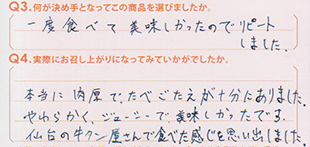 Q3.何が決め手となってこの商品を選びましたか。
一度食べて美味しかったのでリピート
しました。
Q4.実際にお召し上がりになってみていかがでしたか。
本当に肉厚で、たべごたえが十分にありました。
やわらかく、ジューシーで美味しかったです。
仙台の牛タン屋さんで食べた感じを思い出しました。